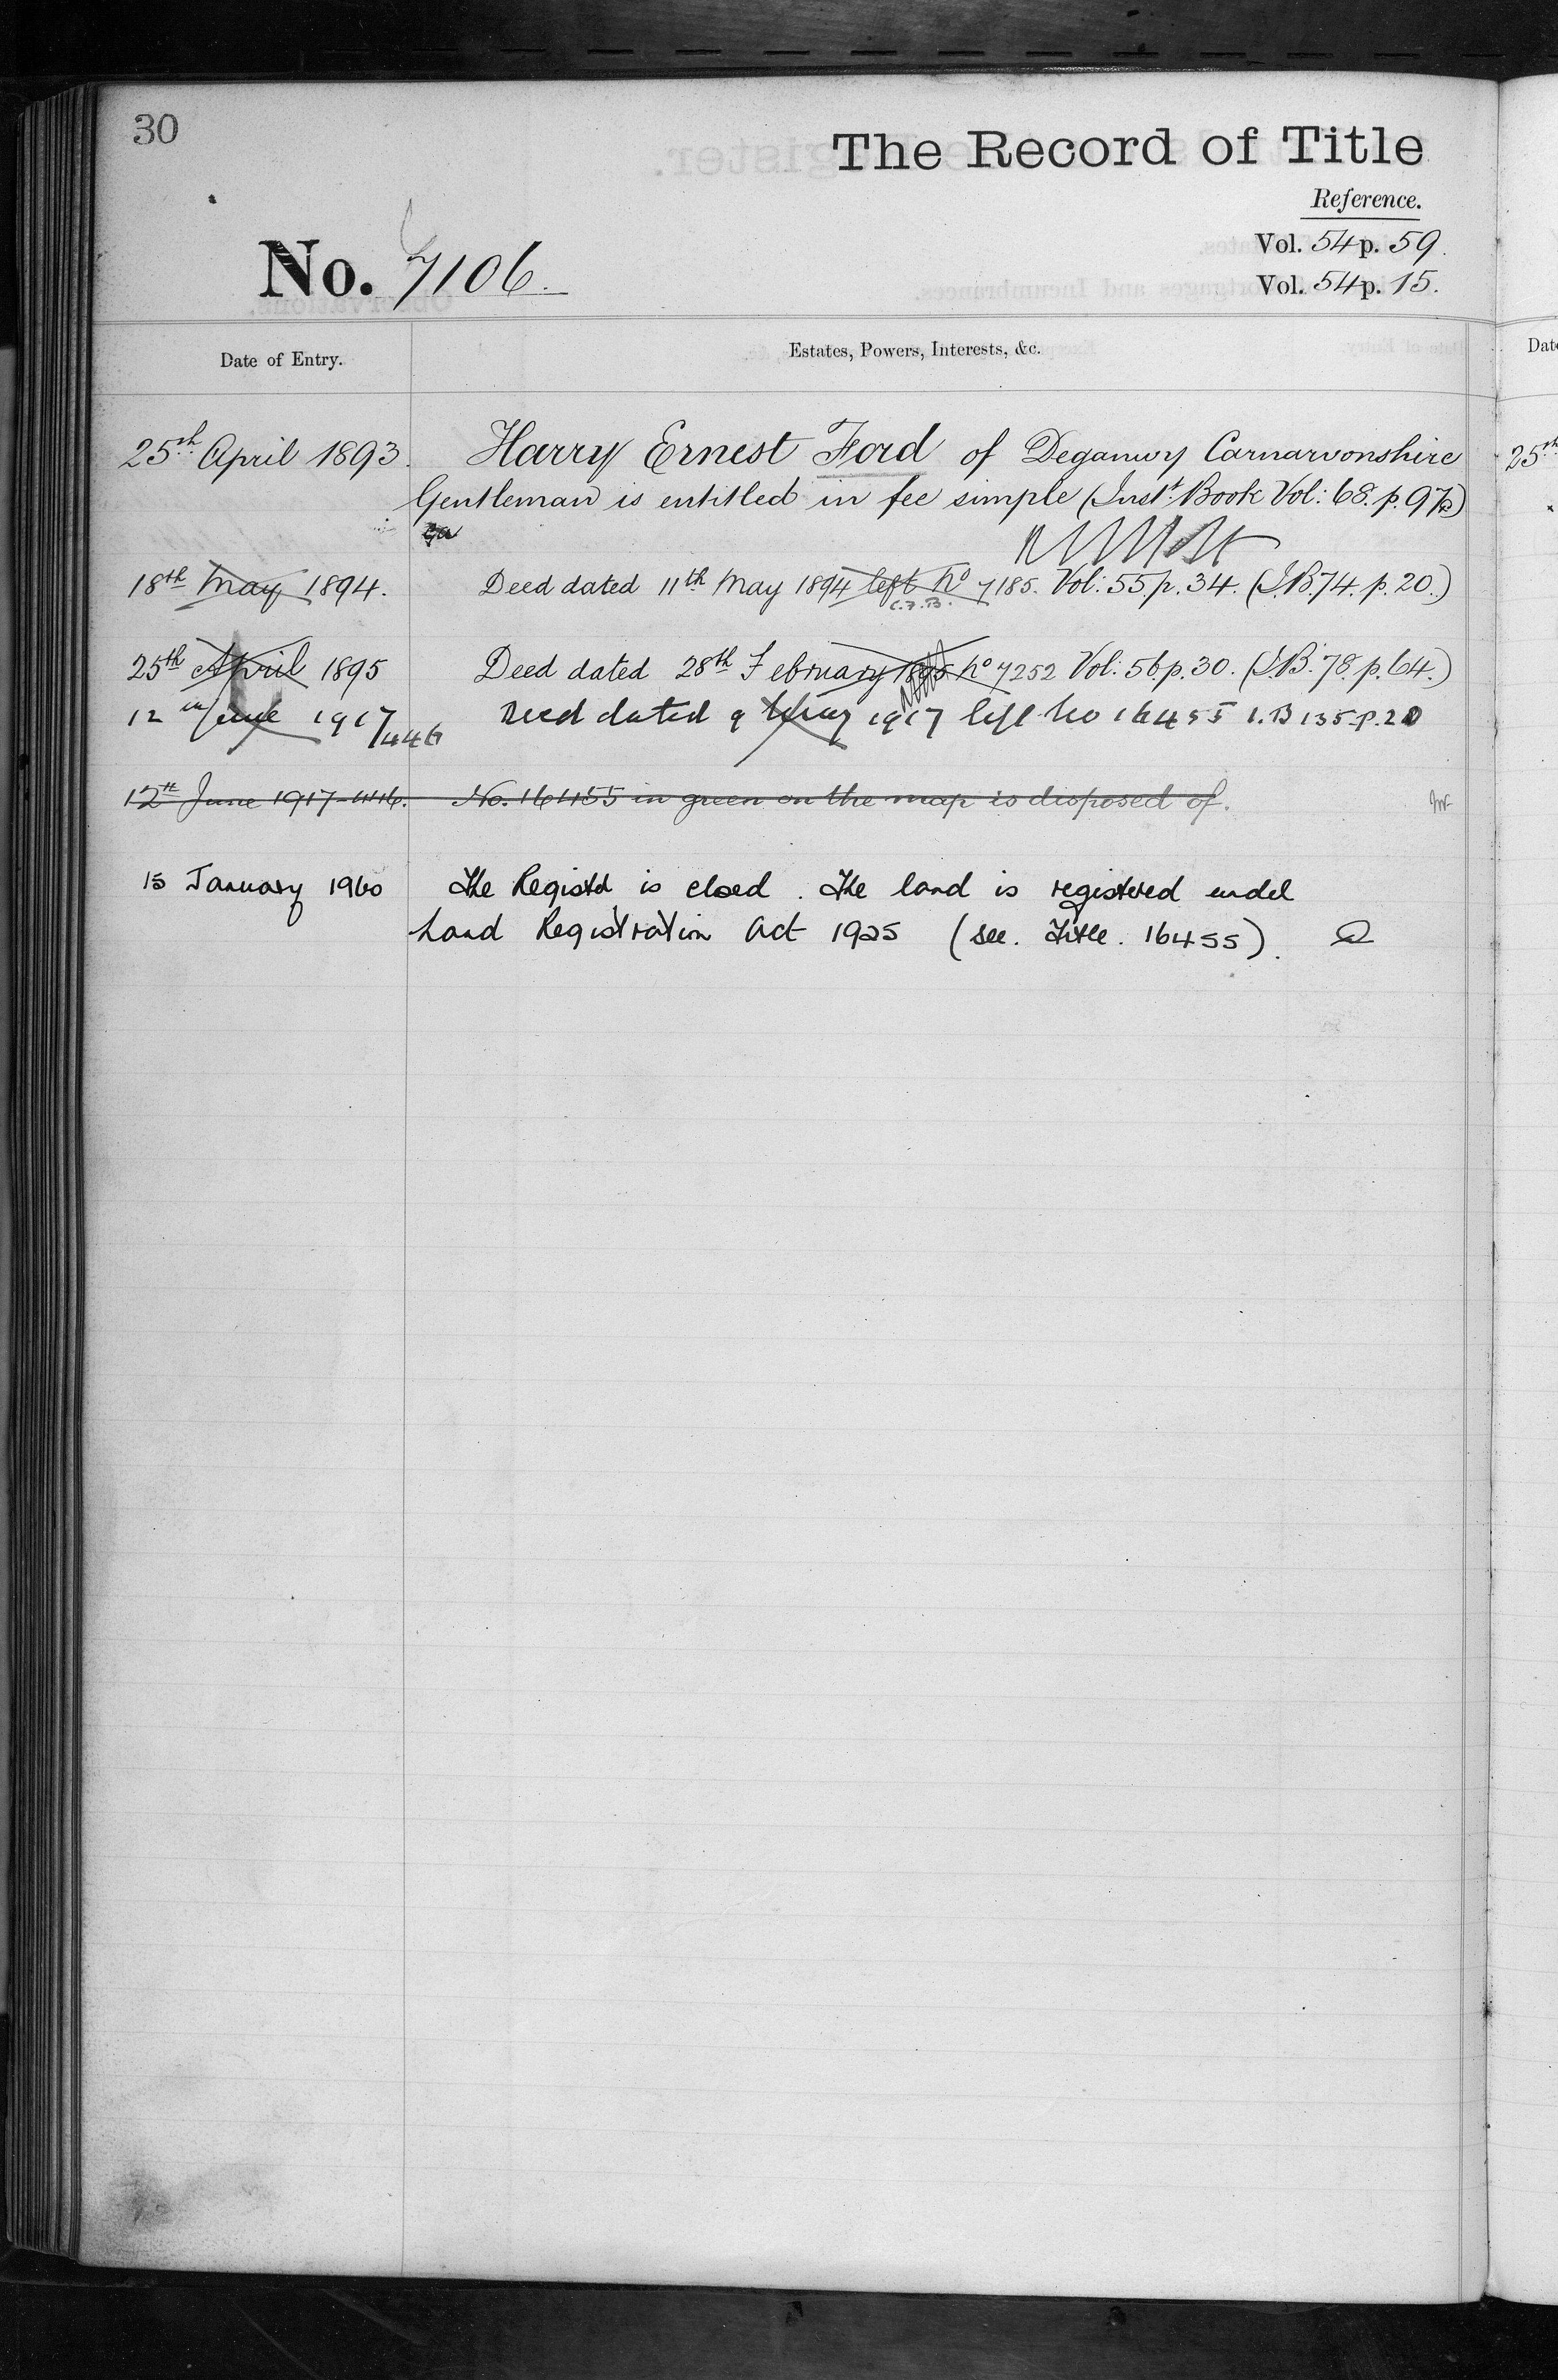 30
The Record of Title
Reference.
Vol. 54 p. 59.
No. 7106.
Vol. 54 p. 15.
Date of Entry.
Estates, Powers, Interests, &c.
Date
25th April 1893. Harry Ernest Ford of Deganwy Carnarvonshire
25th
Gentleman is entitled in fee simple (Inst. Book Vol: 68. p. 97)
18th May 1894. Deed dated 11th May 1894 left No 7185. Vol: 55. p. 34. (I.B. 74. p. 20.)
C.F.B.
25th April 1895 Deed dated 28th February 1895 No 7252 Vol: 56 p. 30. (I.B. 78. p. 64.)
12 June 1917/446 Deed dated 9 May 1917 left No 16455 I.B 135 p. 20
12th June 1917-446. No. 16455 in green on the map is disposed of.
15 January 1960 The Register is closed. The land is registered under
Land Registration Act 1925 (see. Title. 16455).